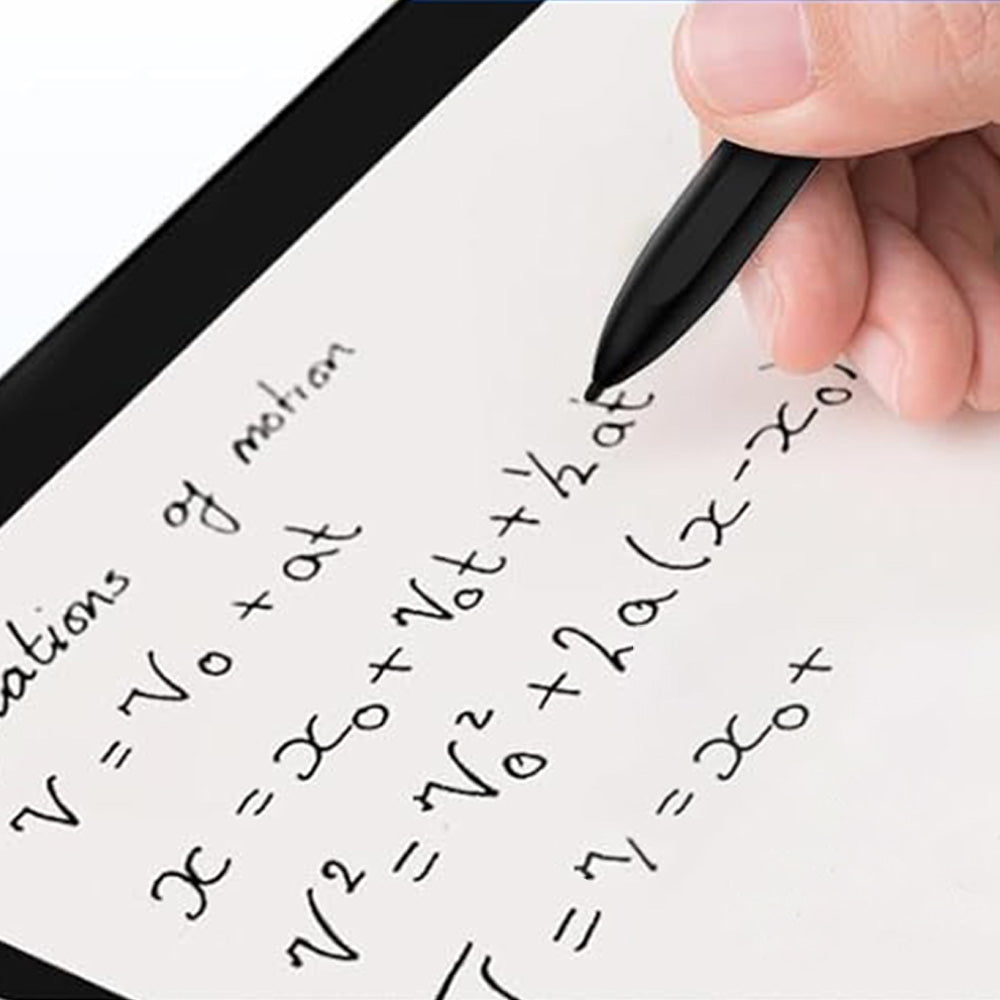 ations of motion
v = v₀ + at
x = x₀ + v₀t + ½ at
v² = v₀² + 2a(x - x₀)
= x₀ +